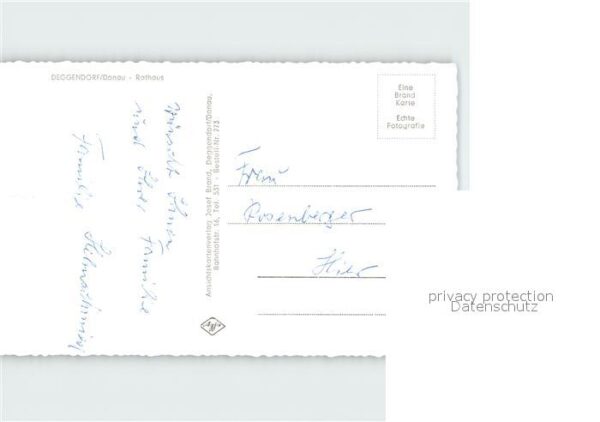 DEGGENDORF/Donau - Rathaus
wünscht Ihnen
und Ihrer Familie
Familie
Ansichtskartenverlag Josef Brand, Deggendorf/Donau,
Bahnhofstr. 16, Tel. 551 - Bestell-Nr. 273
Eine
Brand
Karte
Echte
Fotografie
Frau
Rosenberger
Hier
privacy protection
Datenschutz